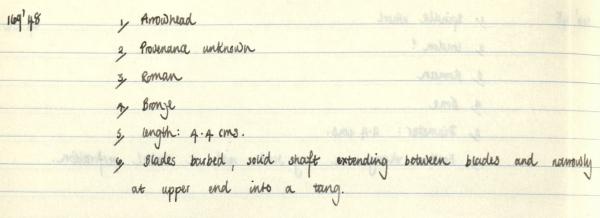 169'48
1, Arrowhead
2, Provenance unknown
3, Roman
4, Bronze
5, Length: 4.4 cms.
6, Blades barbed, solid shaft extending between blades and narrowly
at upper end into a tang.